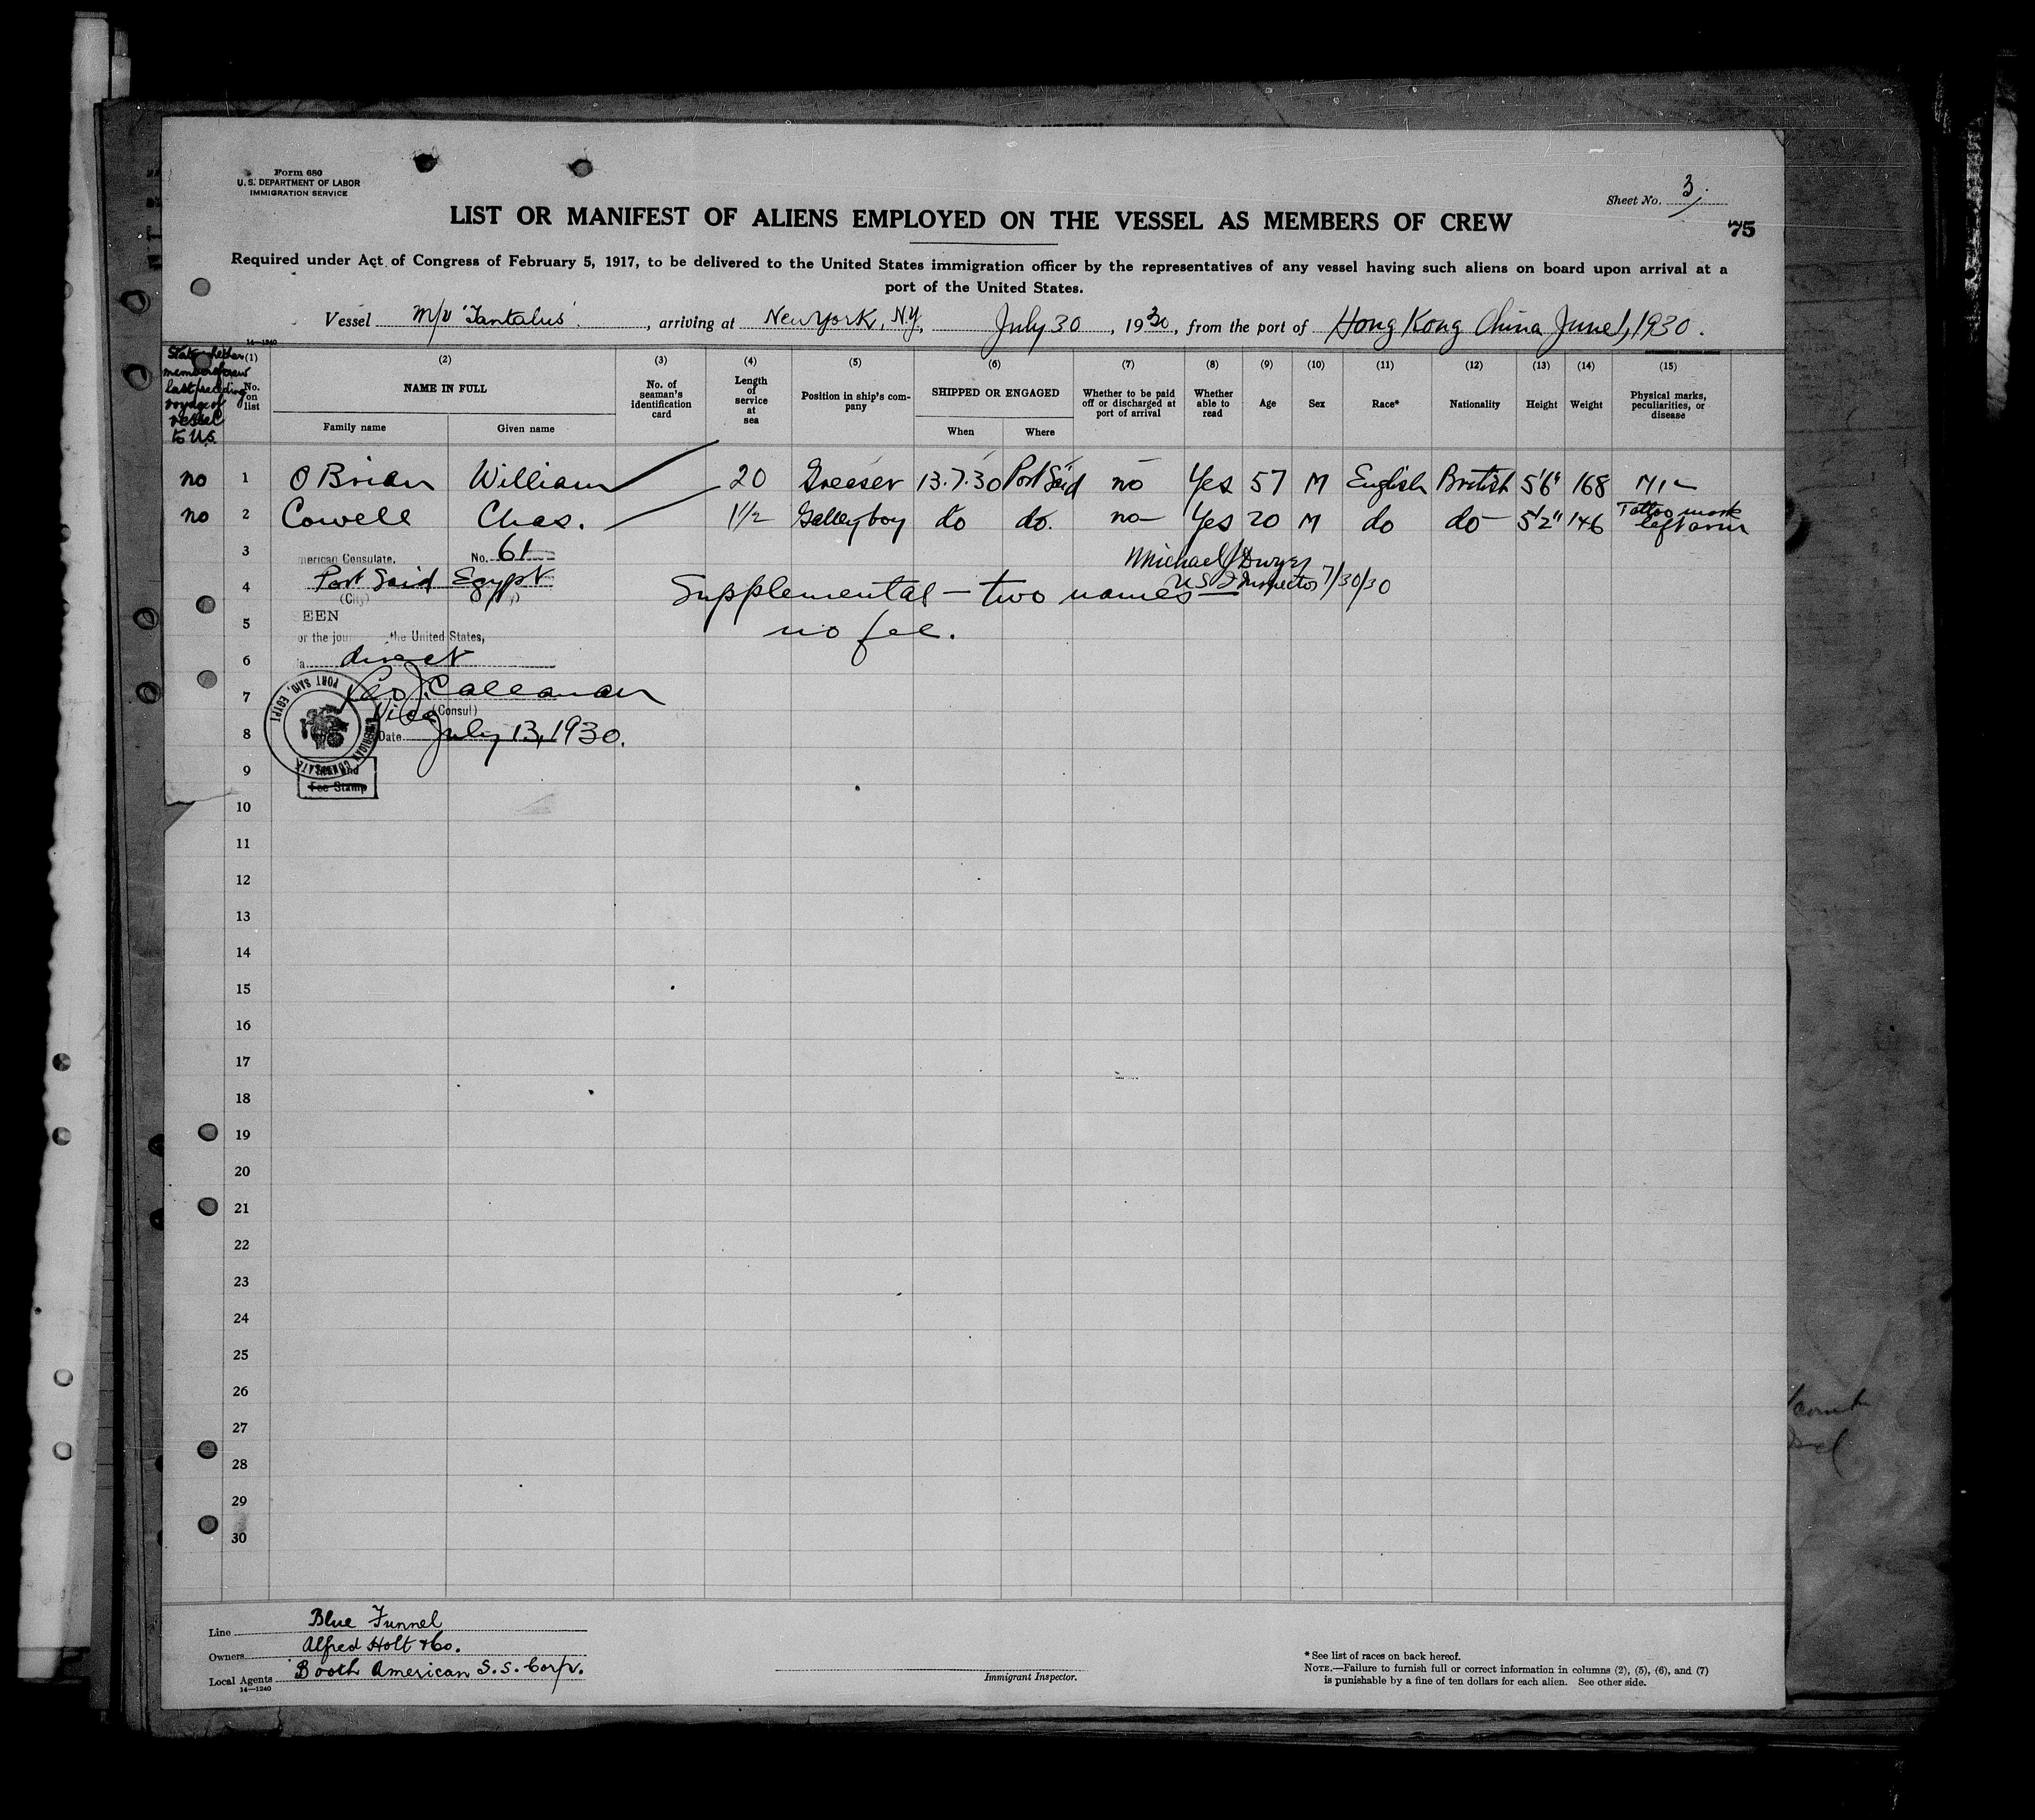 Form 680
U.S. DEPARTMENT OF LABOR
IMMIGRATION SERVICE
Sheet No. 3
LIST OR MANIFEST OF ALIENS EMPLOYED ON THE VESSEL AS MEMBERS OF CREW
75
Required under Act of Congress of February 5, 1917, to be delivered to the United States immigration officer by the representatives of any vessel having such aliens on board upon arrival at a
port of the United States.
Vessel M/V 'Tantalus', arriving at New York, N.Y., July 30, 1930, from the port of Hong Kong China June 1, 1930.
14—1240
State whether member of crew last preceding voyage of vessel to U.S.
(1) No. on list
(2) NAME IN FULL
Family name Given name
(3) No. of seaman's identification card
(4) Length of service at sea
(5) Position in ship's company
(6) SHIPPED OR ENGAGED
When Where
(7) Whether to be paid off or discharged at port of arrival
(8) Whether able to read
(9) Age
(10) Sex
(11) Race*
(12) Nationality
(13) Height
(14) Weight
(15) Physical marks, peculiarities, or disease
no 1 O Brian William 20 Greaser 13.7.30 Port Said no Yes 57 M English British 5'6" 168
no 2 Cowell Chas. 1½ Galley boy do do. no Yes 20 M do do 5'2" 146 Tattoo mark left arm
3
merican Consulate, No. 61
Michael J Dwyer
4
Port Said Egypt
(City)
US I Inspector 7/30/30
Supplemental — two names
EEN
5
no fee.
or the jou the United States,
6
a direct
7
Callanan
Vice (Consul)
8
Date July 13, 1930.
AMERICAN CONSULATE PORT SAID, EGYPT
9
Fee Stamp
10
11
12
13
14
15
16
17
18
19
20
21
22
23
24
25
26
27
28
29
30
Line Blue Funnel
Owners Alfred Holt & Co.
Local Agents Booth American S.S. Corp.
14—1240
Immigrant Inspector.
* See list of races on back hereof.
NOTE.—Failure to furnish full or correct information in columns (2), (5), (6), and (7)
is punishable by a fine of ten dollars for each alien. See other side.